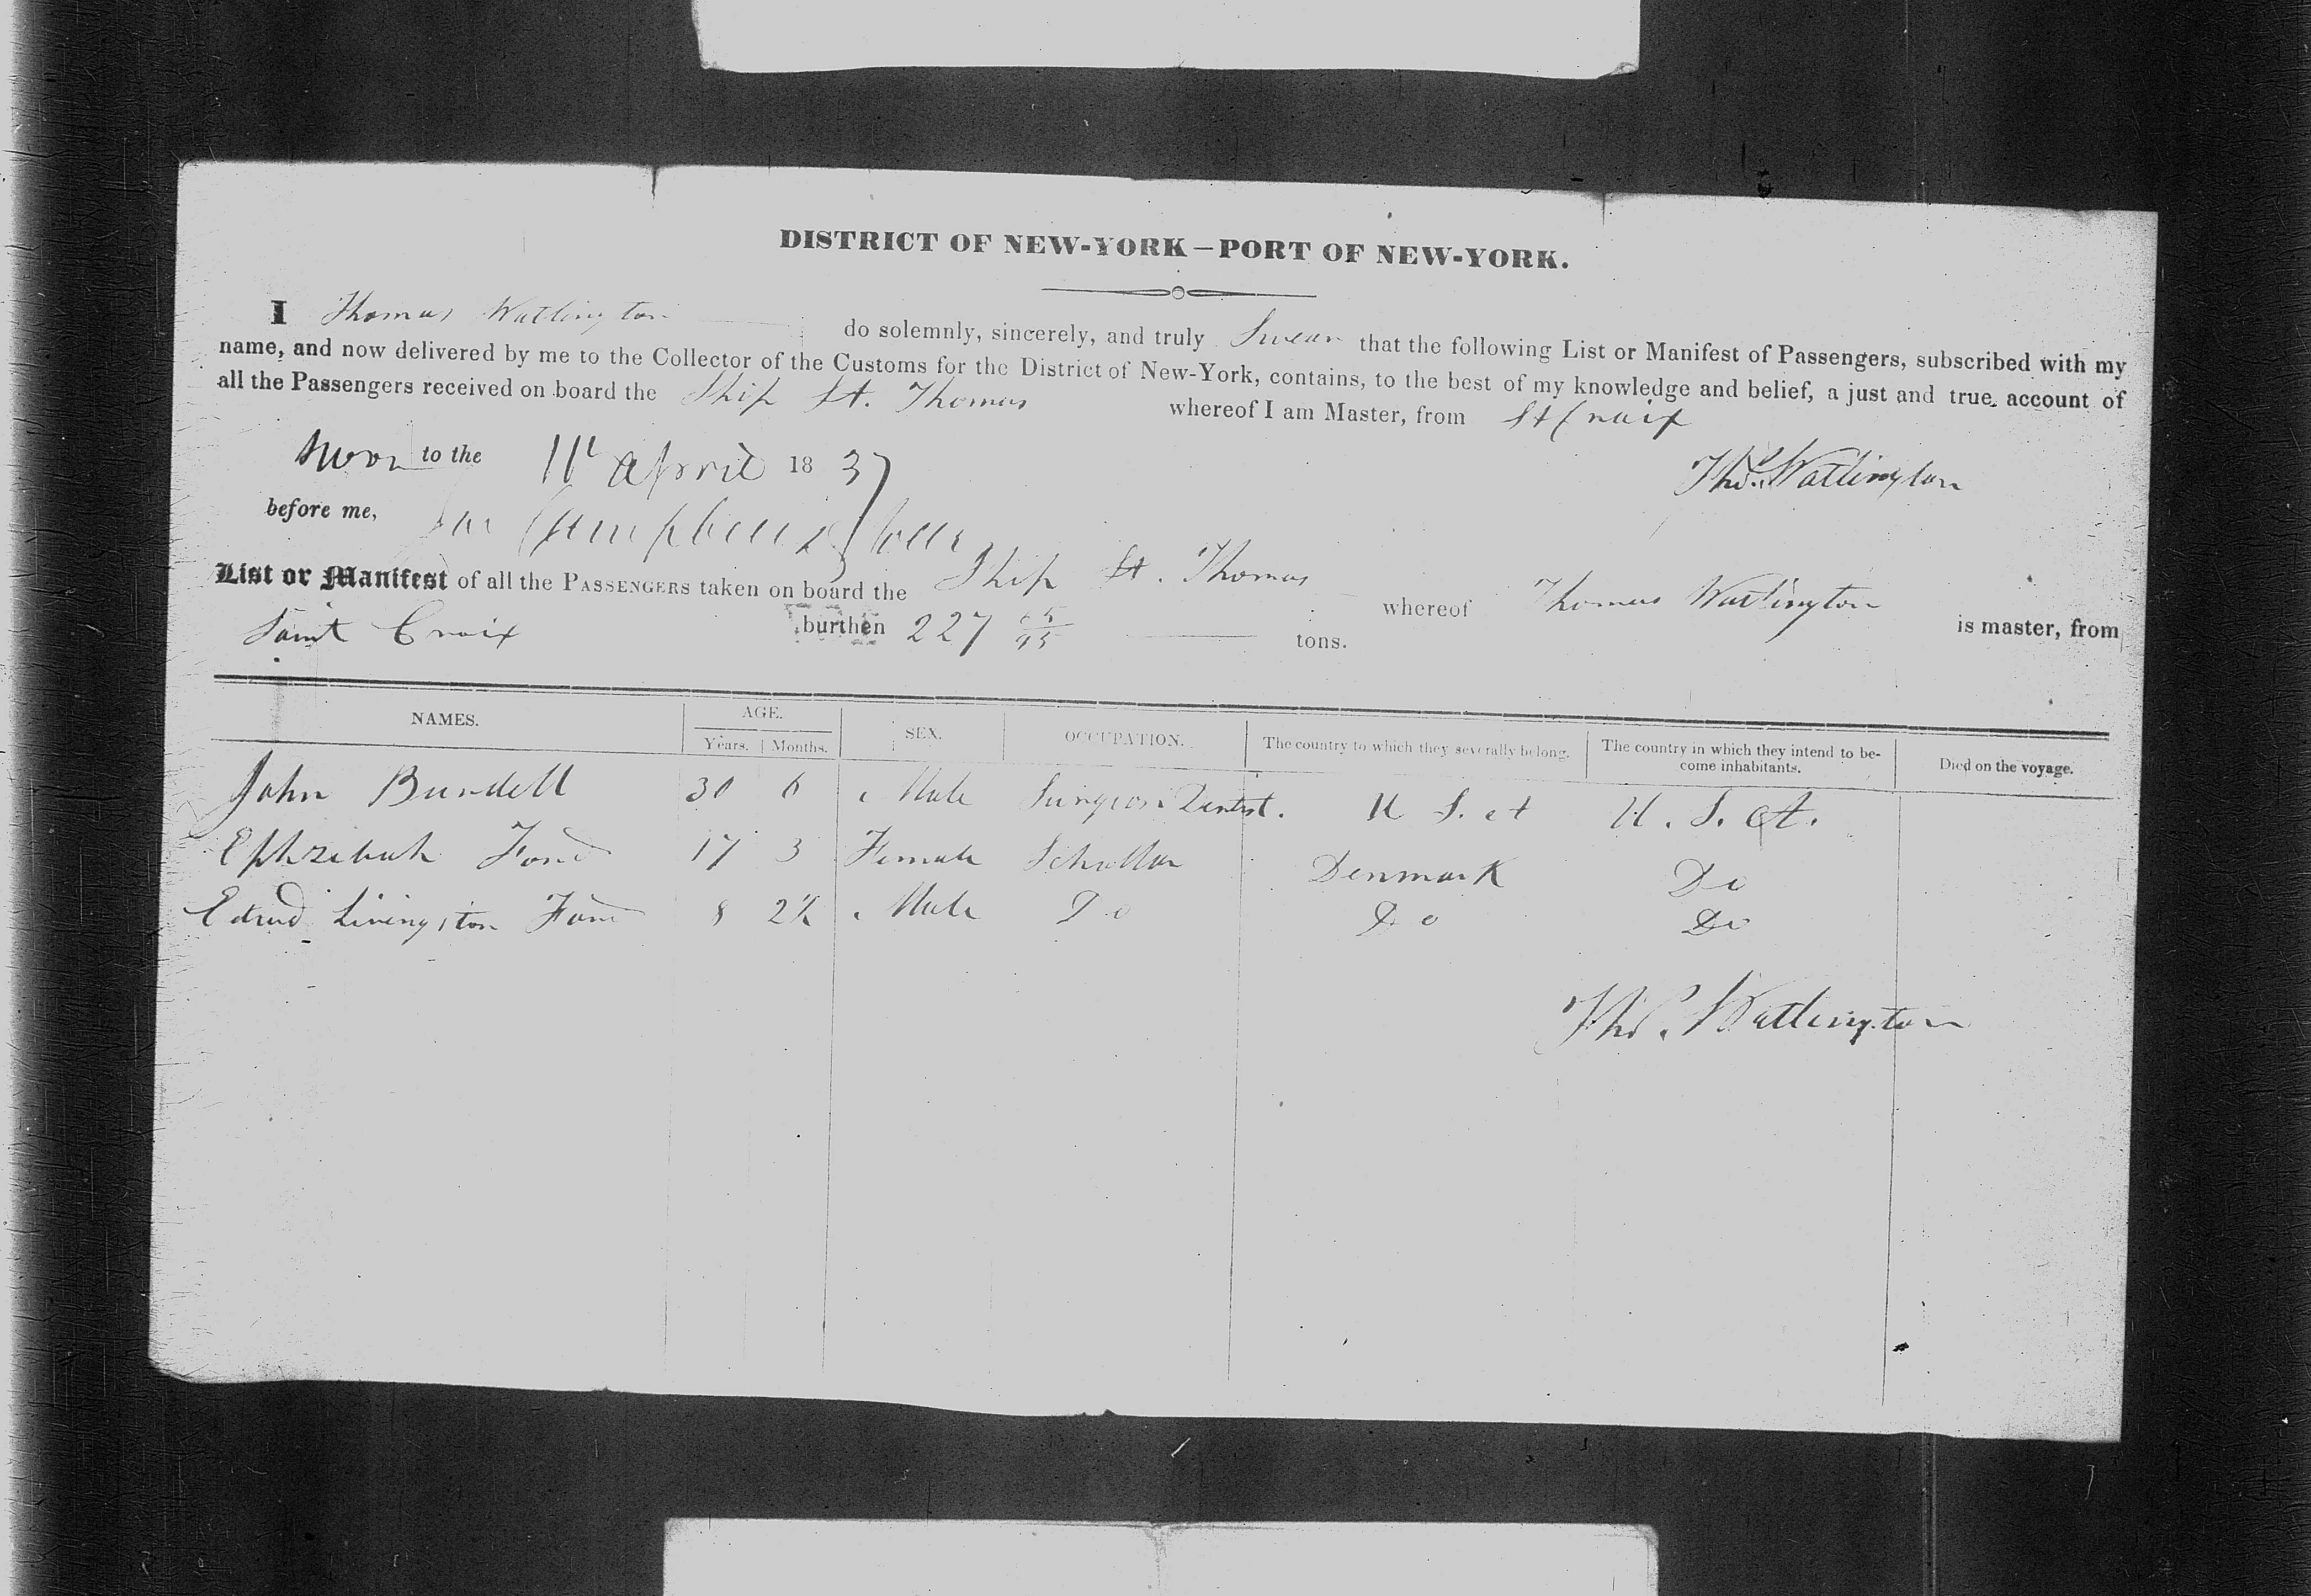 DISTRICT OF NEW-YORK—PORT OF NEW-YORK.
I Thomas Watlington do solemnly, sincerely, and truly Swear that the following List or Manifest of Passengers, subscribed with my
name, and now delivered by me to the Collector of the Customs for the District of New-York, contains, to the best of my knowledge and belief, a just and true account of
all the Passengers received on board the Ship St. Thomas whereof I am Master, from St Croix
Sworn to the 11t April 1837 Thos. Watlington
before me,
List or Manifest of all the PASSENGERS taken on board the Ship St. Thomas whereof Thomas Watlington is master, from
Saint Croix burthen 227 65/95 tons.
NAMES. AGE. SEX. OCCUPATION. The country to which they severally belong. The country in which they intend to be-
come inhabitants. Died on the voyage.
Years. Months.
John Burdell 30 6 Male Surgeon Dentist. U S. A U. S. A.
Ephzibah Ford 17 3 Female Schollar Denmark Do
Edwd Livingston Ford 8 2½ Male Do Do Do
Thos. Watlington